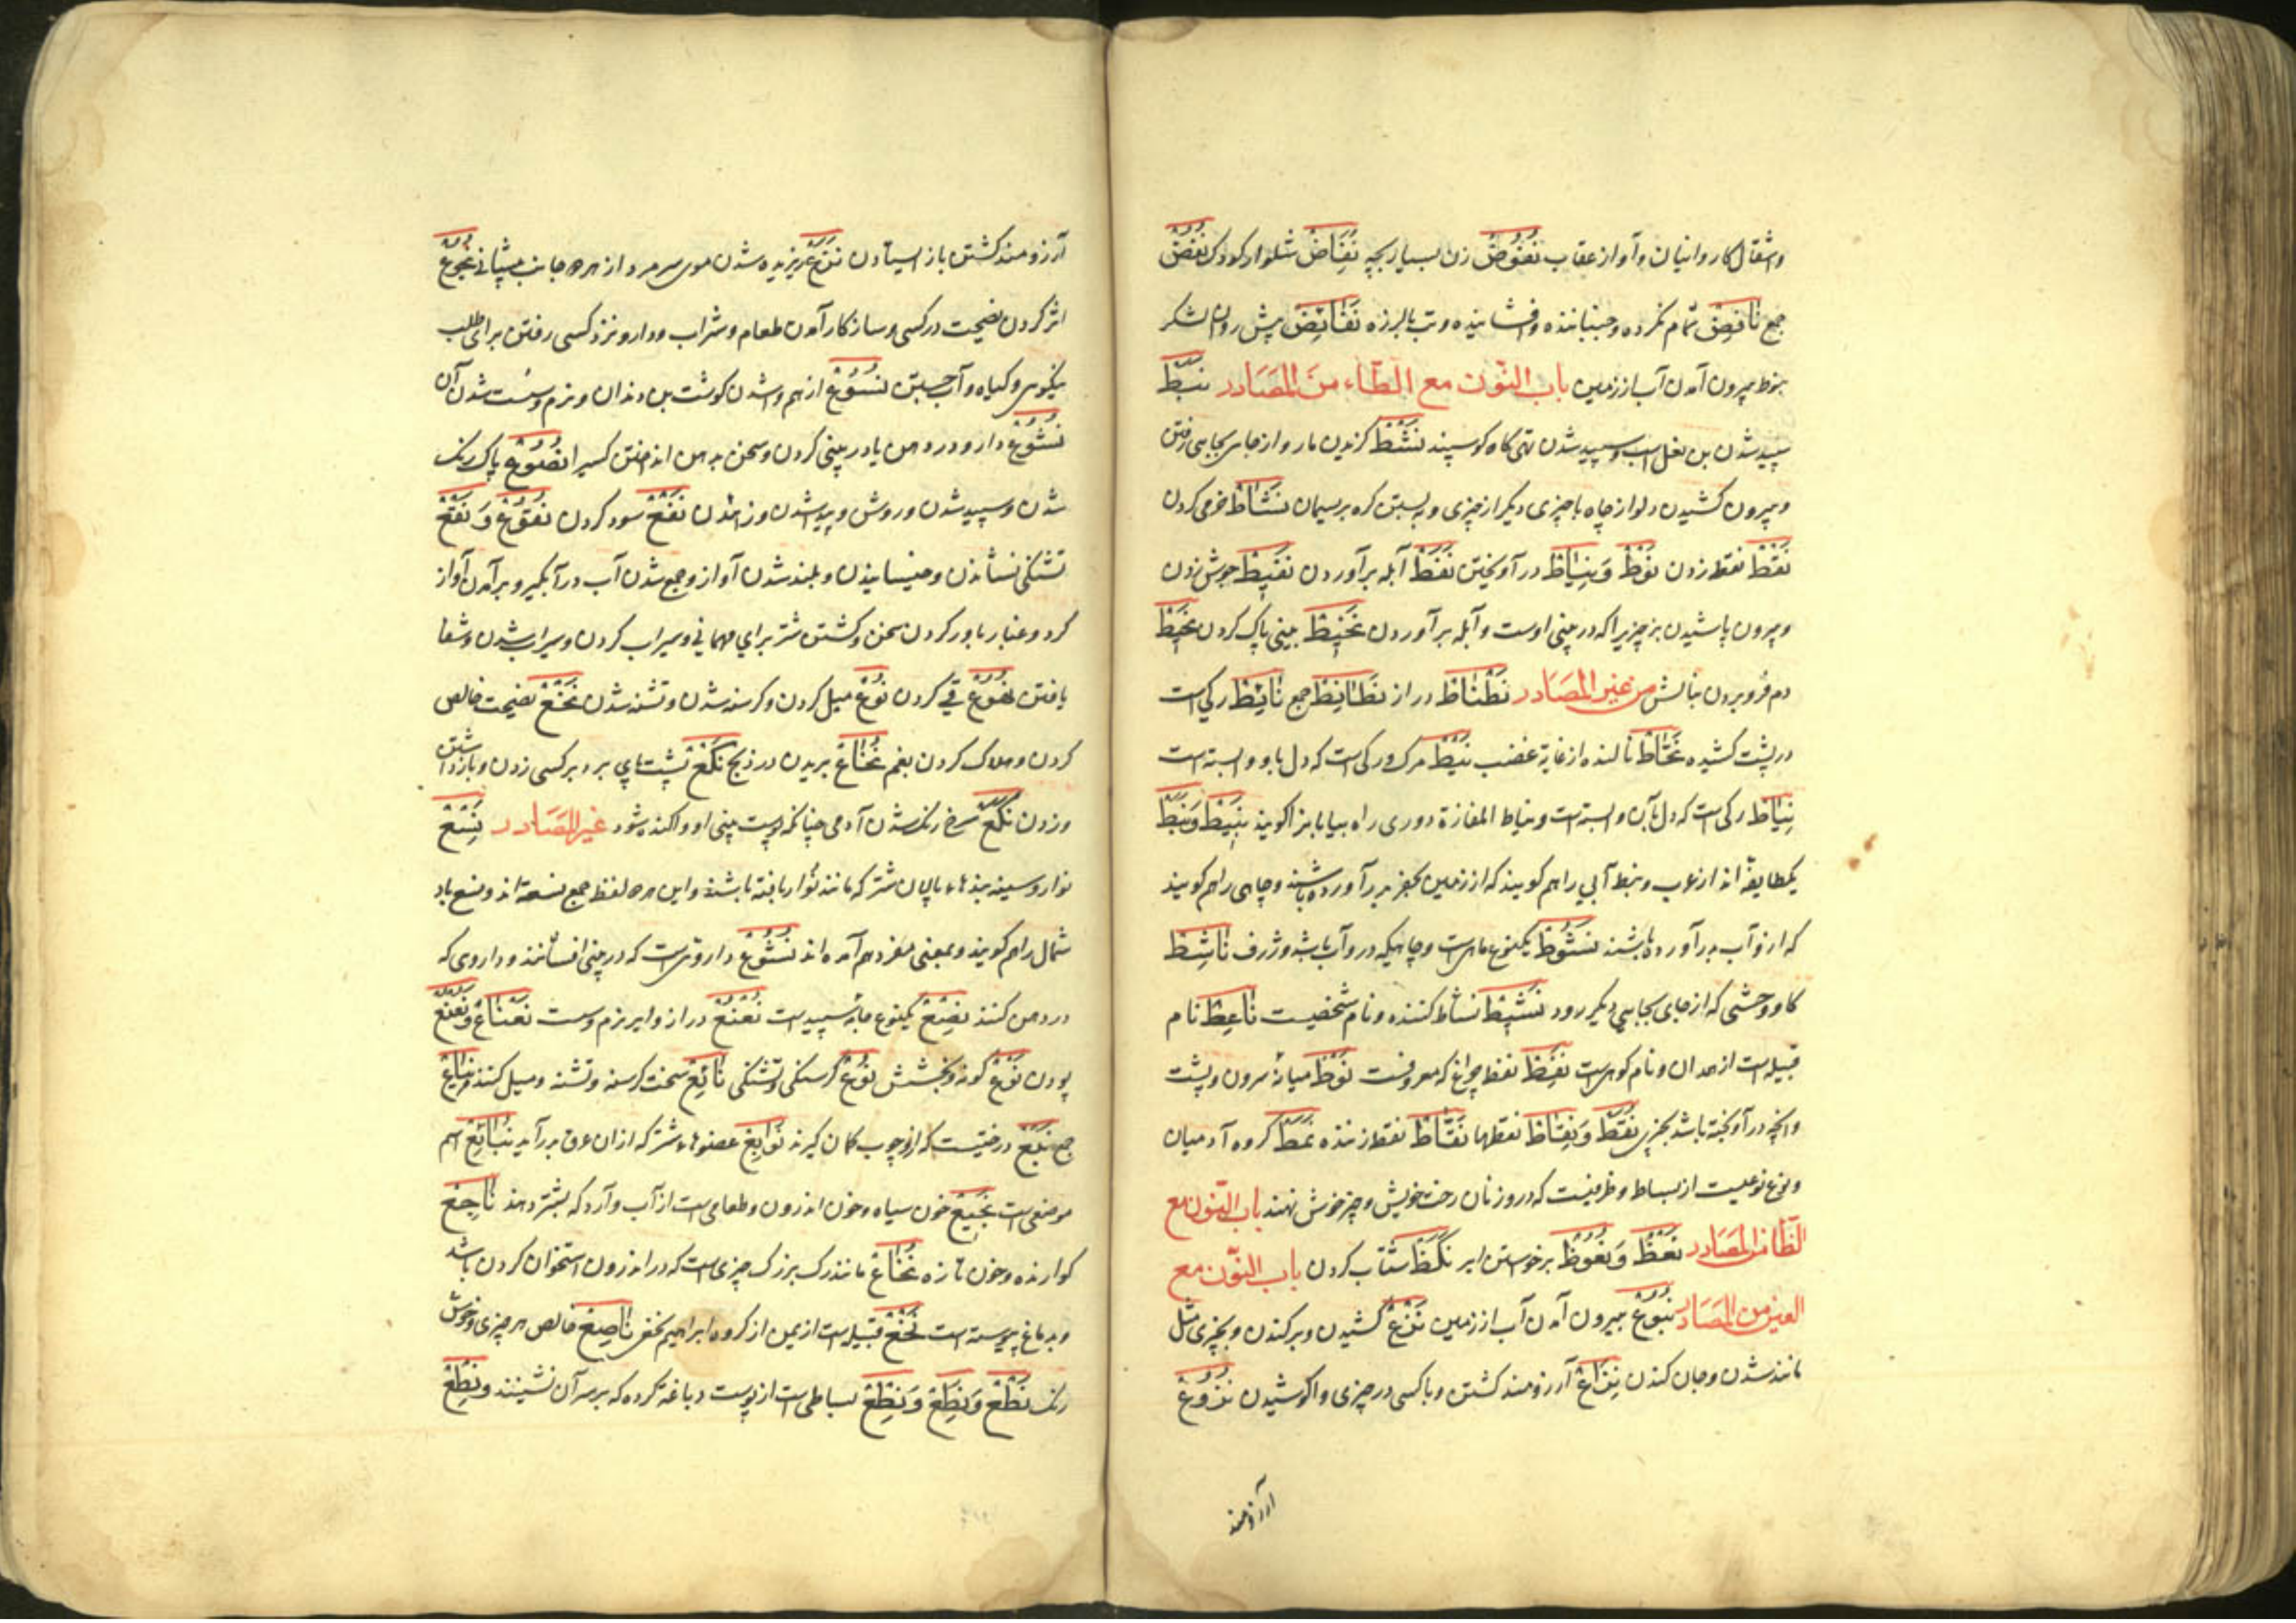 و شغال کاروانیان و آواز عقاب نُفُوض زن بسیار بچه نُفَاض شلوار کودک نُفُض
جمع نَافِض تمام نکرده و جنباننده و افشاننده و تب با لرزه نَفَائِض پیش روان لشکر
نبوط بیرون آمدن آب از زمین باب النّون مع الطّاء من المَصَادر نَبَط
سپید شدن بن بغل اسب و سپید شدن تهی کاه کوسپند نَشْط کزیدن مار و از جای بجایی رفتن
و بیرون کشیدن دلو از چاه با چیزی دیکر از چیزی و بستن کره بر ریسمان نَشَاط خرمی کردن
نَقْط نقطه زدن نَوْط وَ نِیَاط در آویختن نَفْط آبله برآوردن نَفِیط جوش زدن
و بیرون پاشیدن بز چیزیرا که در بینی اوست و آبله برآوردن نَخِیط بینی پاک کردن نَحِیط
دم فرو بردن بنالش من غیر المَصَادر نَطْنَاط دراز نَطَانِط جمع نَائِط رکی است
در پشت کشیده نَحَّاط نالنده از غایة غضب نَیْط مرک و رکی است که دل باو وابسته است
نِیَاط رکی است که دل بآن وابسته است و نیاط المفازة دوری راه بیابانرا کویند نَبِیط وَ نَبَط
یکطایفه اند از عرب و نبط آبی را هم کویند که از زمین بحفر بدر آورده باشند و چاهی را هم کویند
که ازو آب بدر آورده باشند نَشُوط یکنوع ماهیست و چاهیکه درو آب باشد و ژرف نَاشِط
کاو وحشی که از جای بجایی دیکر رود نَشِیط نشاط کننده و نام شخصیست نَاعِط نام
قبیله است از همدان و نام کوهیست نِفْط نفط چراغ که معروفست نَوْط میانهٔ سرون و پشت
و انچه در آویخته باشد بچیزی نُقَط وَ نِقَاط نقطها نَقَّاط نقطه زننده نَمَط کروه آدمیان
و نوع نوعیست از بساط و ظرفیست که درو زنان رخت خویش و چیز خوش نهند باب النّون مع
الظّا من المَصَادر نَعْظ وَ نُعُوظ برخواستن ایر نَکَظ شتاب کردن باب النّون مع
العین من المَصَادر نُبُوع بیرون آمدن آب از زمین نَزْع کشیدن و برکندن و بچیزی مثل
مانند شدن و جان کندن نِزَاع آرزومند کشتن و با کسی در چیزی واکوشیدن نُزُوع
آرزومند
آرزومند کشتن باز ایستادن نَزَع ریزیده شدن موی سر مرد از هر دو جانب پیشانی نُجُوع
اثر کردن نصیحت در کسی و ساز کار آمدن طعام و شراب و دارو و نزد کسی رفتن برای طلب
نیکویی و کیاه و آب جستن نُسُوع از هم وا شدن کوشت بن دندان و نرم و سست شدن آن
نُشُوع دارو در دهن یا در بینی کردن و سخن بدهن انداختن کسیرا نُصُوع پاک رنک
شدن و سپید شدن و روش و پدید شدن و زاییدن نَفْع سود کردن نُقُوع وَ نَقْع
تشنکی نشاندن و خیسانیدن و بلند شدن آواز و جمع شدن آب در آبکیر و برآمدن آواز
کرد و غبار باور کردن سخن و کشتن شتر برای مهمانی و سیراب کردن و سیراب شدن و شفا
یافتن نُعُوع قی کردن نَوْع میل کردن و کرسنه شدن و تشنه شدن نَخْع نصیحت خالص
کردن و هلاک کردن بغم نُخَاع بریدن در ذبح نَکْع پشت پای بر دبر کسی زدن و بازداشتن
وردن نَکَع سرخ رنک شدن آدمی چنانکه پوست بینی او واکنده شود غیر المَصَادر نِسْع
نوار و سینه بندهاء پالان شتر که مانند نوار بافته باشند و این هر دو لفظ جمع نسعة اند و نسع باد
شمال را هم کویند و بمعنی مفرد هم آمده اند نَشُوع داروییست که در بینی افشانند و داروی که
در دهن کنند نِصْع یکنوع جامهٔ سپید است نُعْنُع دراز و ایر نرم و سست نَعْنَاع وَ نَعْنَع
پودن نَوْع کونه و بخشش نُوع کرسنکی و تشنکی نَائِع سخت کرسنه و تشنه و میل کننده نِیَاع
جمع نَبْع درختیست که ازو چوب کمان کیرند نَوَابِع عضوهاء شتر که از ان عرق بدر آید نُبَائِع اسم
موضعی است نَجِیع خون سیاه و خون اندرون و طعامی است از آب و آرد که بشتر دهند نَاجِع
کوارنده و خون تازه نُخَاع مانند رک بزرک چیزی است که در اندرون استخوان کردن باشد
و بدماغ پیوسته است نَخَع قبیله است از یمن از کروه ابراهیم نخعی نَاصِع خالص هر چیزی و خوش
رنک نَطْع وَ نِطَع وَ نِطْع بساطی است از پوست دباغه کرده که بر سر آن نشینند و نِطْع